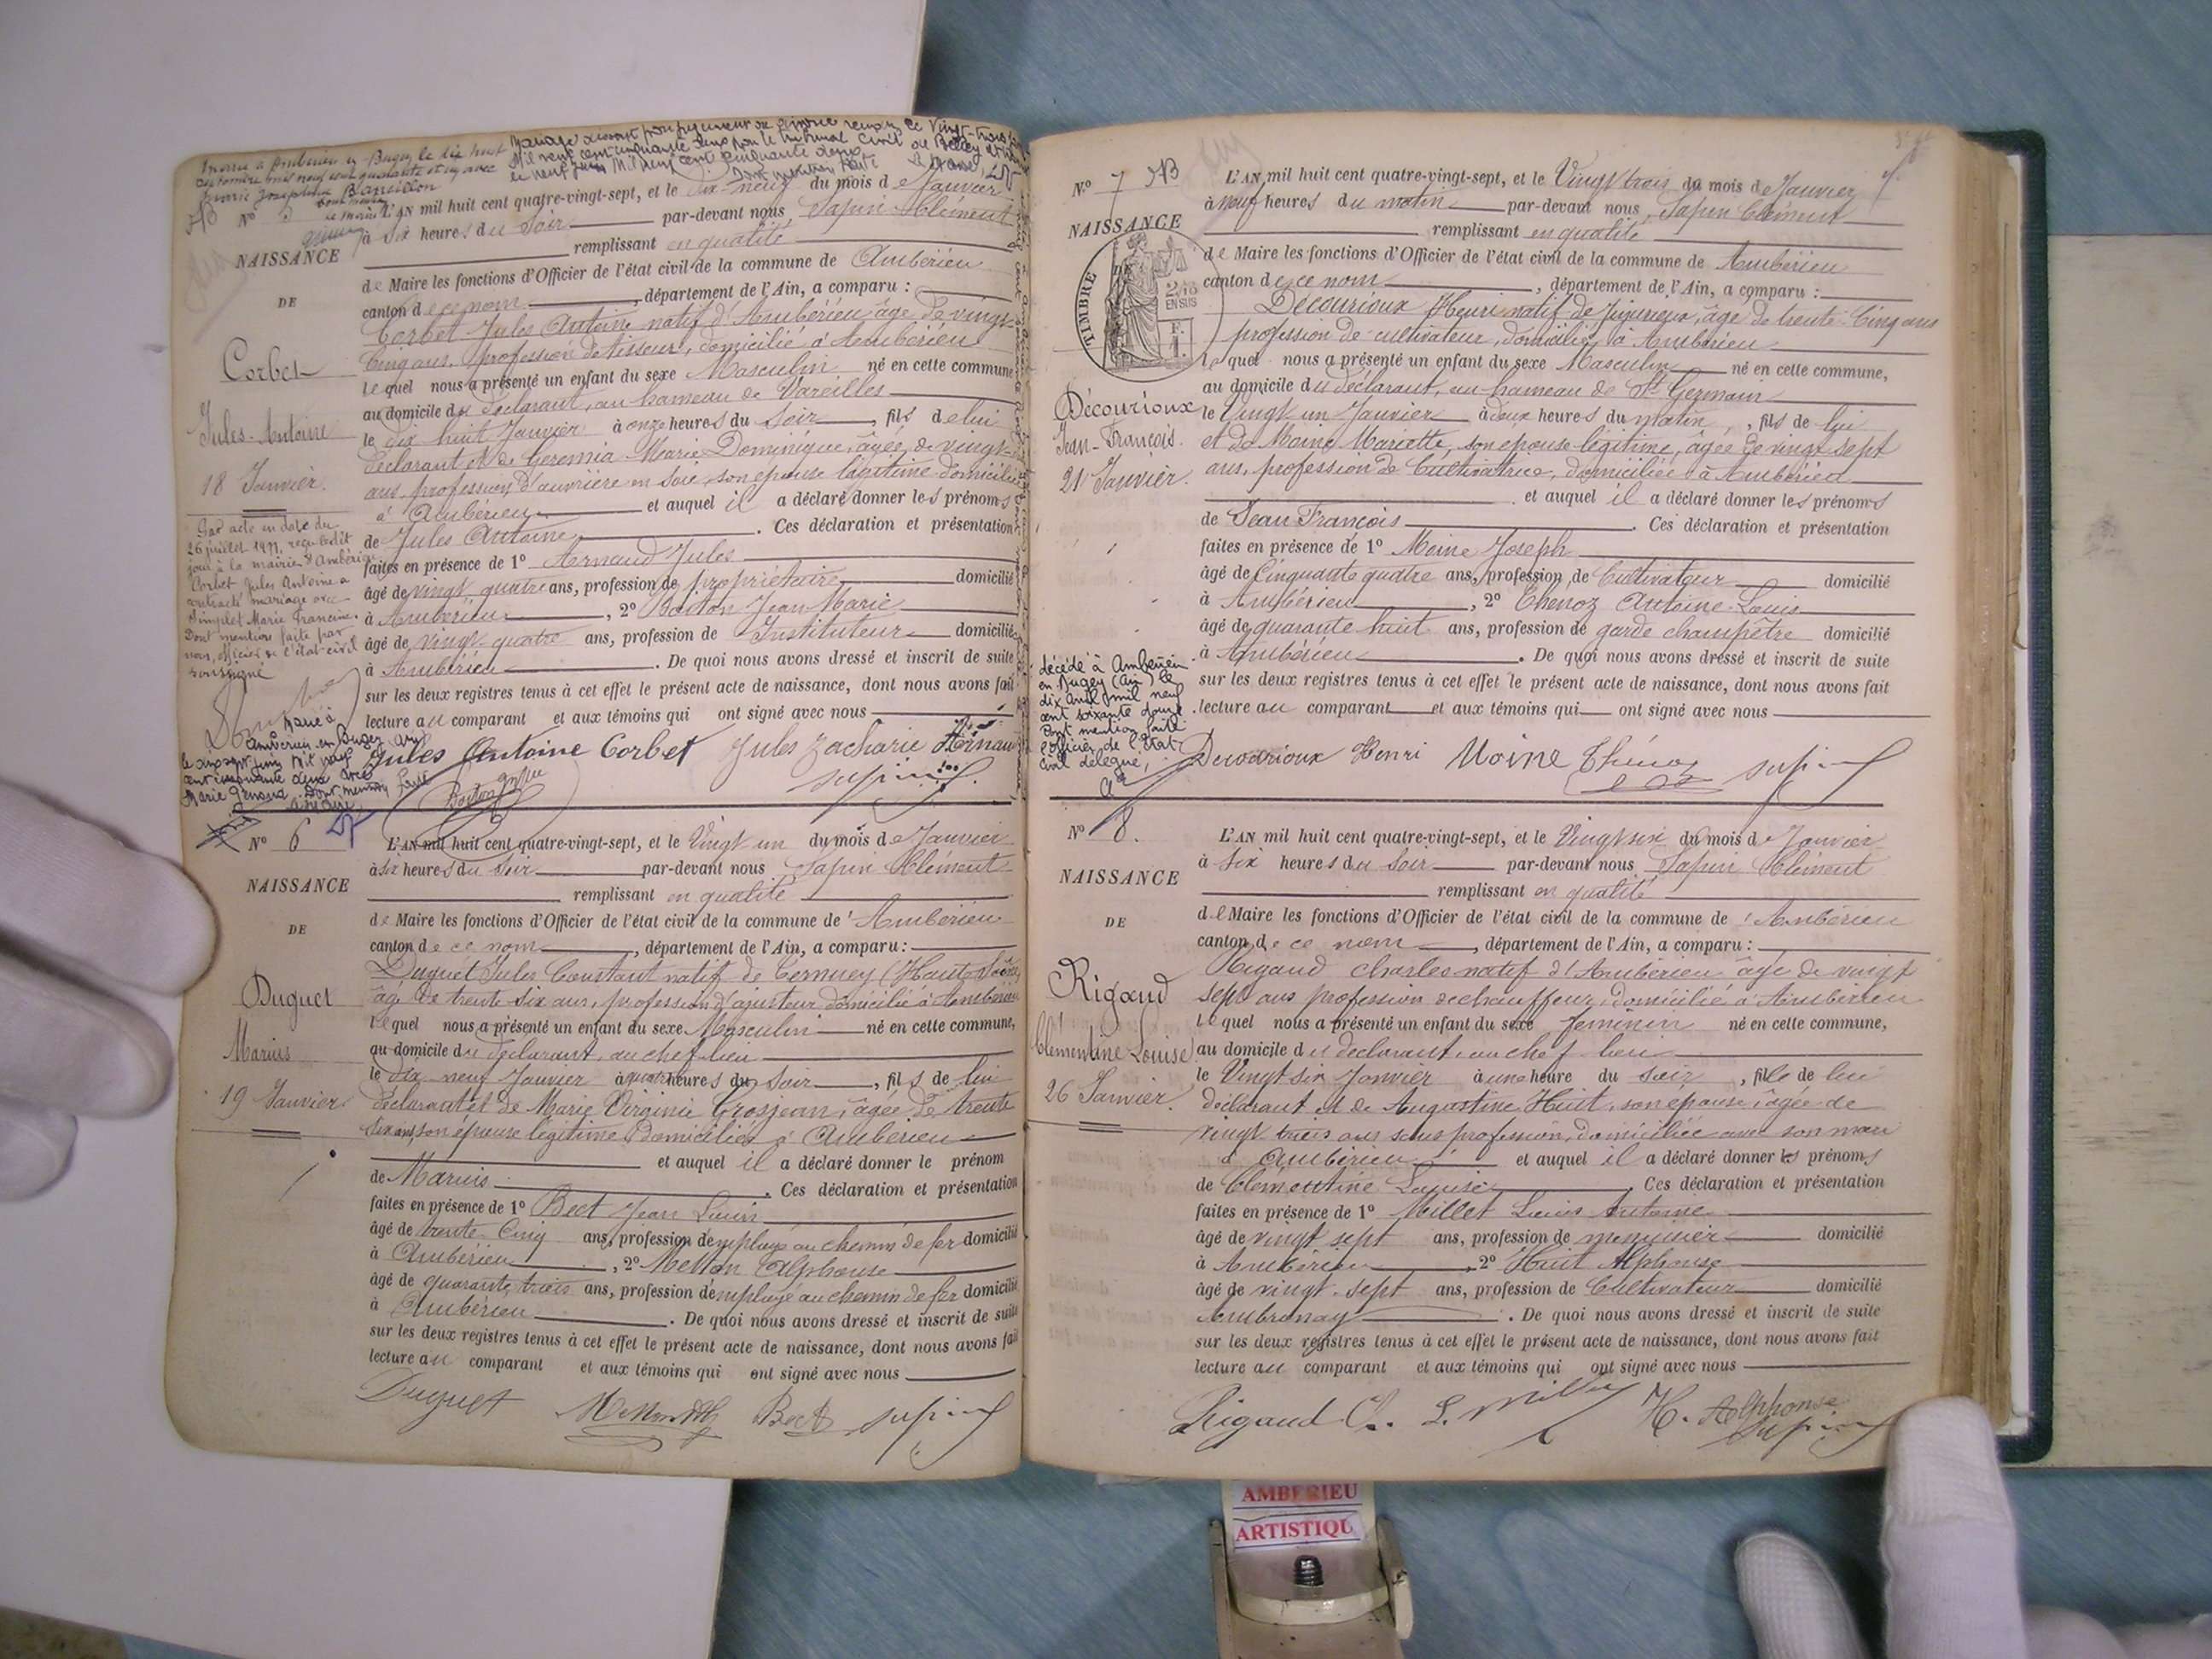 Marié à Ambérieu en Bugey le dix huit
septembre mil neuf cent quarante et un avec
Marie Joséphine
Mariage dissout par jugement de divorce rendu le Vingt-trois
Mil neuf cent cinquante deux par le tribunal Civil de Belley
Mil neuf cent cinquante deux
Dont mention faite
Le Maire
N° 5
L'AN mil huit cent quatre-vingt-sept, et le Dix-neuf du mois de Janvier
à Six heures du Soir par-devant nous, Sapin Clément
NAISSANCE
remplissant en qualité
DE
de Maire les fonctions d'Officier de l'état civil de la commune de Ambérieu
canton de ce nom, département de l'Ain, a comparu :
Corbet Jules Antoine natif d'Ambérieu âgé de vingt-
Cinq ans, profession de tisseur, domicilié à Ambérieu
Corbet
Lequel nous a présenté un enfant du sexe Masculin né en cette commune
au domicile du déclarant, au hameau de Vareilles
Jules-Antoine
le dix huit Janvier à onze heures du Soir, fils de lui
déclarant et de Geremia Marie Dominique, âgée de vingt-
18 Janvier.
ans, profession d'ouvrière en soie, son épouse légitime domiciliée
à Ambérieu et auquel il a déclaré donner les prénoms
de Jules Antoine. Ces déclaration et présentation
faites en présence de 1° Arnaud Jules
âgé de vingt quatre ans, profession de propriétaire domicilié
à Ambérieu, 2° Boston Jean Marie
âgé de vingt-quatre ans, profession de Instituteur domicilié
à Ambérieu. De quoi nous avons dressé et inscrit de suite
sur les deux registres tenus à cet effet le présent acte de naissance, dont nous avons fait
lecture au comparant et aux témoins qui ont signé avec nous
Par acte en date du
26 juillet 1911, reçu ledit
jour à la mairie d'Ambérieu
Corbet Jules Antoine a
contracté mariage avec
Simplet Marie Francine.
Dont mention faite par
nous, officier de l'état-civil
soussigné
Marié à
Ambérieu en Bugey Ain
le dix sept juin Mil neuf
cent cinquante deux avec
Marie Dont mention faite
Jules Antoine Corbet Jules Zacharie Arnaud
Boston Sapin
N° 6
L'AN mil huit cent quatre-vingt-sept, et le Vingt un du mois de Janvier
à six heures du Soir par-devant nous Sapin Clément
NAISSANCE
remplissant en qualité
DE
de Maire les fonctions d'Officier de l'état civil de la commune de Ambérieu
canton de ce nom, département de l'Ain, a comparu :
Duguet Jules Constant natif de (Haute Saône)
âgé de trente six ans, profession d'ajusteur domicilié à Ambérieu
Duguet
Lequel nous a présenté un enfant du sexe Masculin né en cette commune,
Marius
au domicile du déclarant, au chef-lieu
le dix neuf Janvier à quatre heures du Soir, fils de lui
19 Janvier
déclarant et de Marie Virginie Grosjean, âgée de trente
six ans son épouse légitime domiciliée à Ambérieu
et auquel il a déclaré donner le prénom
de Marius. Ces déclaration et présentation
faites en présence de 1° Bect Jean Louis
âgé de trente-Cinq ans, profession d'employé au chemin de fer domicilié
à Ambérieu, 2° Metton Alphonse
âgé de quarante trois ans, profession d'employé au chemin de fer domicilié
à Ambérieu. De quoi nous avons dressé et inscrit de suite
sur les deux registres tenus à cet effet le présent acte de naissance, dont nous avons fait
lecture au comparant et aux témoins qui ont signé avec nous
Duguet Bect Sapin
N° 7
L'AN mil huit cent quatre-vingt-sept, et le Vingt trois du mois de Janvier
à neuf heures du matin par-devant nous, Sapin Clément
NAISSANCE
remplissant en qualité
DE
de Maire les fonctions d'Officier de l'état civil de la commune de Ambérieu
canton de ce nom, département de l'Ain, a comparu :
TIMBRE
2/10
EN SUS
F.
1.
Décourioux Henri natif de Jujurieux, âgé de trente-Cinq ans
profession de cultivateur, domicilié à Ambérieu
Lequel nous a présenté un enfant du sexe Masculin né en cette commune,
au domicile du déclarant, au hameau de St Germain
Décourioux
le Vingt un Janvier à deux heures du matin, fils de lui
Jean-François.
et de Moine Mariette, son épouse légitime, âgée de vingt sept
21 Janvier.
ans, profession de Cultivatrice, domiciliée à Ambérieu
et auquel il a déclaré donner les prénoms
de Jean François. Ces déclaration et présentation
faites en présence de 1° Moine Joseph
âgé de Cinquante quatre ans, profession de Cultivateur domicilié
à Ambérieu, 2° Thenoz Antoine-Louis
âgé de quarante huit ans, profession de garde champêtre domicilié
à Ambérieu. De quoi nous avons dressé et inscrit de suite
sur les deux registres tenus à cet effet le présent acte de naissance, dont nous avons fait
lecture au comparant et aux témoins qui ont signé avec nous
décédé à Ambérieu
en Bugey (Ain) le
dix Avril mil neuf
cent soixante douze
Dont mention faite
l'officier de l'Etat-
civil délégué,
Decourioux Henri Moine Thénoz Sapin
N° 8.
L'AN mil huit cent quatre-vingt-sept, et le Vingt six du mois de Janvier
à Six heures du Soir par-devant nous Sapin Clément
NAISSANCE
remplissant en qualité
DE
de Maire les fonctions d'Officier de l'état civil de la commune de Ambérieu
canton de ce nom, département de l'Ain, a comparu :
Rigaud Charles natif d'Ambérieu âgé de vingt
sept ans profession de chauffeur, domicilié à Ambérieu
Rigaud
Lequel nous a présenté un enfant du sexe féminin né en cette commune,
Clémentine Louise
au domicile du déclarant, au chef lieu
le Vingt six Janvier à une heure du soir, fille de lui
26 Janvier.
déclarant et de Augustine Huit, son épouse, âgée de
vingt trois ans sans profession, domiciliée avec son mari
à Ambérieu et auquel il a déclaré donner les prénoms
de Clémentine Louise. Ces déclaration et présentation
faites en présence de 1° Millet Louis Antoine
âgé de vingt sept ans, profession de menuisier domicilié
à Ambérieu, 2° Huit Alphonse
âgé de vingt-sept ans, profession de Cultivateur domicilié
Ambronay. De quoi nous avons dressé et inscrit de suite
sur les deux registres tenus à cet effet le présent acte de naissance, dont nous avons fait
lecture au comparant et aux témoins qui ont signé avec nous
Rigaud C. L. Millet H. Alphonse
Sapin
AMBERIEU
ARTISTIQU